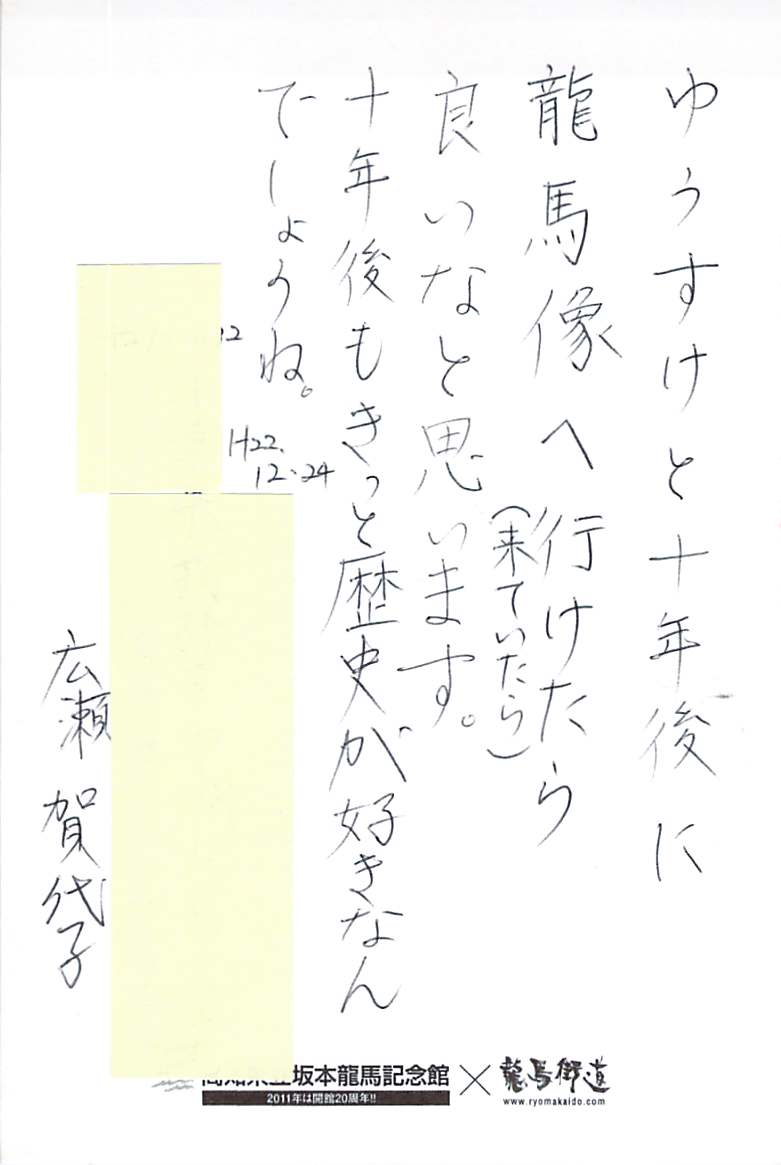 ゆうすけと十年後に
龍馬像へ行けたら
(来ていたら)
良いなと思います。
十年後もきっと歴史が好きなん
でしょうね。
12
H22.
12.24
広瀬 賀代子
坂本龍馬記念館
2011年は開館20周年!!
×
龍馬街道
www.ryomakaido.com